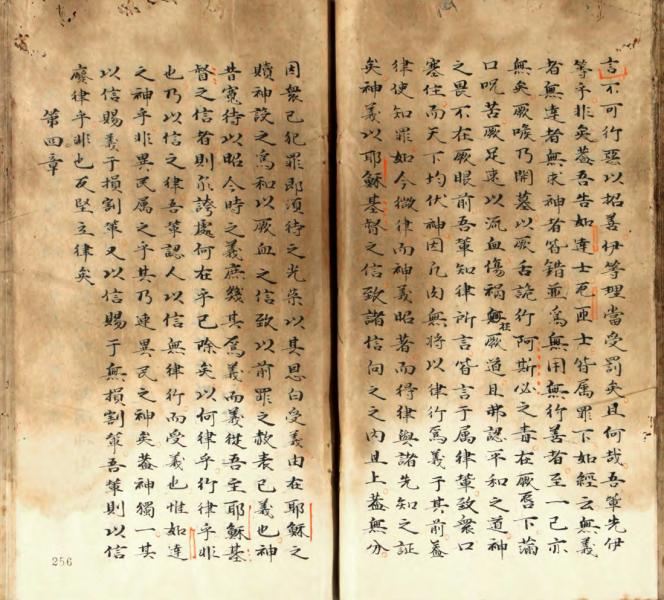 言不可行惡以招善伊等理當受罰矣且何哉吾軰先伊
等乎非矣葢吾告如達士厄匝士皆属罪下如經云無義
者無達者無求神者皆錯並爲無用無行善者至一已亦
無矣厥喉乃開墓以厥舌詭行阿斯必之毒在厥唇下滿
口呪苦厥足速以流血傷禍枉厥道且弗認平和之道神
之畏不在厥眼前吾軰知律所言皆言于属律軰致衆口
塞住而天下均伏神因凢肉無將以律行爲義于其前葢
律使知罪如今微律而神義昭著而得律與諸先知之証
矣神義以耶穌基督之信致諸信向之之內且上葢無分
因衆已犯罪即須待之光荣以其恩白受義由在耶穌之
贖神設之爲和以厥血之信致以前罪之赦表己義也神
昔寬待以昭今時之義庶幾其爲義而義從吾主耶穌基
督之信者則尔誇處何在乎已除矣以何律乎行律乎非
也乃以信之律吾軰認人以信無律行而受義也惟如達
之神乎非異民属之乎其乃連異民之神矣葢神獨一其
以信賜義于損割軰又以信賜于無損割軰吾軰則以信
廢律乎非也反堅立律矣
第四章
256